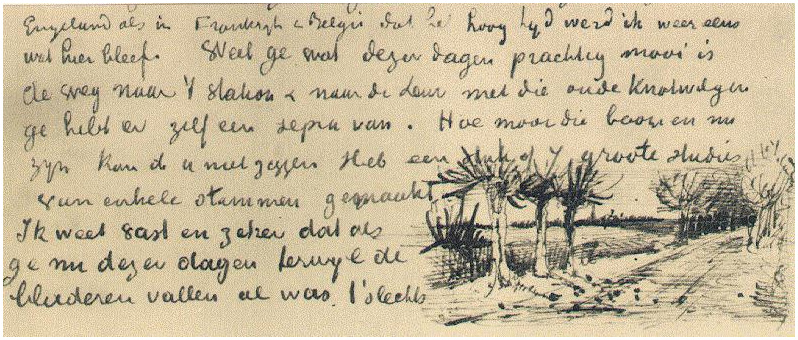 Engeland als in Frankrijk & Belgie dat het hoog tyd werd ik weer eens
wat hier bleef. Weet ge wat dezer dagen prachtig mooi is
de weg naar 't station & naar de Leur met die oude Knotwilgen
ge hebt er zelf een sepia van. Hoe mooi die boomen nu
zyn kan ik u niet zeggen Heb een stuk of 7 groote studies
van enkele stammen gemaakt
Ik weet vast en zeker dat als
ge nu dezer dagen terwyl de
bladeren vallen al was 't slechts